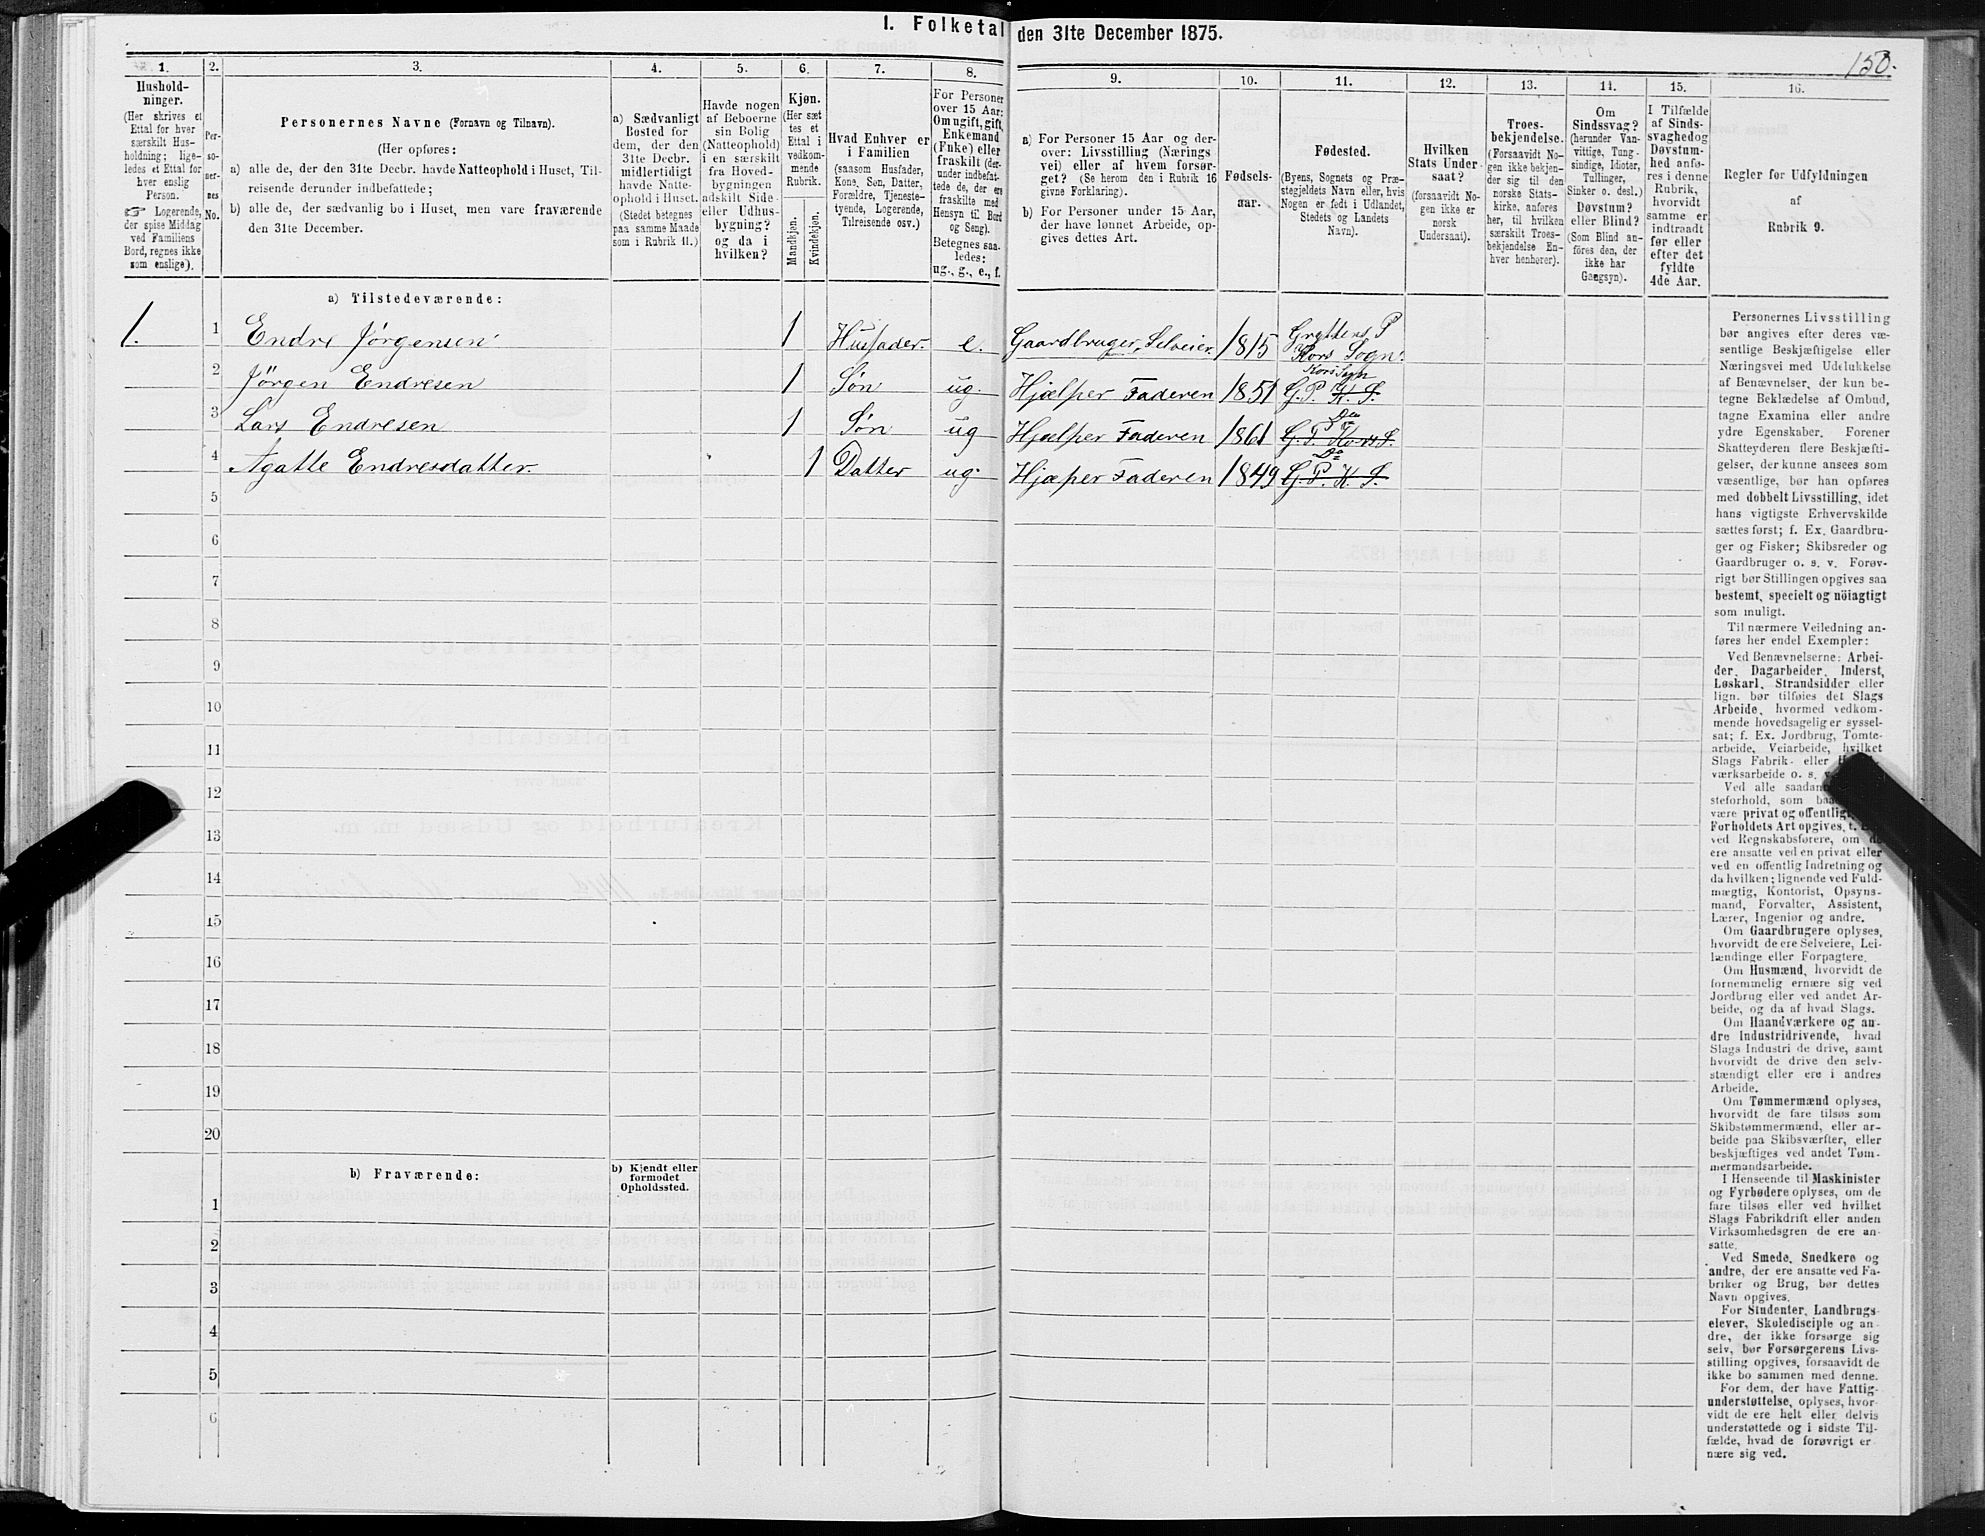 I. Folketal den 31te December 1875.
150.
1.
Hushold-
ninger.
(Her skrives et
Ettal for hver
særskilt Hus-
holdning; lige-
ledes et Ettal for
hver enslig
Person.
☞ Logerende,
der spise Middag
ved Familiens
Bord, regnes ikke
som enslige).
2.
Per-
so-
ner-
nes
No.
3.
Personernes Navne (Fornavn og Tilnavn).
(Her opføres:
a) alle de, der den 31te Decbr. havde Natteophold i Huset, Til-
reisende derunder indbefattede;
b) alle de, der sædvanlig bo i Huset, men vare fraværende
den 31te December.
4.
a) Sædvanligt
Bosted for
dem, der den
31te Decbr.
midlertidigt
havde Natte-
ophold i Huset.
(Stedet betegnes
paa samme Maade
som i Rubrik 11.)
5.
Havde nogen
af Beboerne
sin Bolig
(Natteophold)
i en særskilt
fra Hoved-
bygningen
adskilt Side-
eller Udhus-
bygning?
og da i
hvilken?
6.
Kjøn.
(Her sæt
tes et
Ettal i
vedkom-
mende
Rubrik.
Mandkjøn.
Kvindekjøn.
7.
Hvad Enhver er
i Familien
(saasom Husfader,
Kone, Søn, Datter,
Forældre, Tjeneste-
tyende, Logerende,
Tilreisende osv.)
8.
For Personer
over 15 Aar:
Om ugift, gift,
Enkemand
(Enke) eller
fraskilt (der-
under indbefat-
tede de, der ere
fraskilte med
Hensyn til Bord
og Seng).
Betegnes saa-
ledes:
ug., g., e., f.
9.
a) For Personer 15 Aar og der-
over: Livsstilling (Nærings
vei) eller af hvem forsør-
get? (Se herom den i Rubrik 16
givne Forklaring).
b) For Personer under 15 Aar,
der have lønnet Arbeide, op-
gives dettes Art.
10.
Fødsels-
aar.
11.
Fødested.
(Byens, Sognets og Præ-
stegjeldets Navn eller, hvis
Nogen er født i Udlandet,
Stedets og Landets
Navn).
12.
Hvilken
Stats Under-
saat?
(forsaavidt No-
gen ikke er
norsk
Undersaat).
13.
Troes-
bekjendelse.
(Forsaavidt No-
gen ikke bekjen-
der sig til den
norske Stats-
kirke, anføres
her, til hvilken
særskilt Troes-
bekjendelse En-
hver henhører).
14.
Om
Sindssvag?
(herunder Van-
vittige, Tung-
sindige, Idioter,
Tullinger,
Sinker o. desl.)
Døvstum?
eller Blind?
(Som Blind an-
føres den, der
ikke har
Gangsyn).
15.
I Tilfælde
af Sinds-
svaghed og
Døvstum-
hed anfø-
res i denne
Rubrik,
hvorvidt
samme er
indtraadt
før eller
efter det
fyldte
4de Aar.
16.
Regler for Udfyldningen
af
Rubrik 9.
a) Tilstedeværende:
1. 1 Endre Jørgensen 1 Husfader. e. Gaardbruger, Selveier. 1815 Gryttens P
Kors Sogn.
2 Jørgen Endresen 1 Søn ug. Hjælper Faderen 1851 G. P. K. S. Kors Sogn
3 Lars Endresen 1 Søn ug Hjælper Faderen 1861 G. P. Kors S. Do
4 Agatte Endresdatter 1 Datter ug. Hjæper Faderen 1849 G. P. K. S. Do
5
6
7
8
9
10
11
12
13
14
15
16
17
18
19
20
b) Fraværende:
b) Kjendt eller
formodet
Opholdssted.
1
2
3
4
5
6
Personernes Livsstilling
bør angives efter deres væ-
sentlige Beskjæftigelse eller
Næringsvei med Udelukkelse
af Benævnelser, der kun be-
tegne Beklædelse af Ombud,
tagne Examina eller andre
ydre Egenskaber. Forener
Skatteyderen flere Beskjæfti-
gelser, der kunne ansees som
væsentlige, bør han opføres
med dobbelt Livsstilling, idet
hans vigtigste Erhvervskilde
sættes først; f. Ex. Gaardbru-
ger og Fisker; Skibsreder og
Gaardbruger o. s. v. Forøv-
rigt bør Stillingen opgives saa
bestemt, specielt og nöiagtigt
som muligt.
Til nærmere Veiledning an-
føres her endel Exempler:
Ved Benævnelserne: Arbei-
der, Dagarbeider, Inderst,
Løskarl, Strandsidder eller
lign. bør tilføies det Slags
Arbeide, hvormed vedkom-
mende hovedsagelig er syssel-
sat; f. Ex. Jordbrug, Tomte-
arbeide, Veiarbeide, hvilket
Slags Fabrik- eller
værksarbeide o. s.
Ved alle saadan
steforhold, som
være privat og offentlig
Forholdets Art opgives,
ved Regnskabsførere, om
ere ansatte ved en privat eller
ved en offentlig Indretning og
da hvilken; lignende ved Fuld-
mægtig, Kontorist, Opsyns-
mand, Forvalter, Assistent,
Lærer, Ingeniør og andre.
Om Gaardbrugere oplyses,
hvorvidt de ere Selveiere, Lei-
lændinge eller Forpagtere.
Om Husmænd, hvorvidt de
fornemmelig ernære sig ved
Jordbrug eller ved andet Ar-
beide, og da af hvad Slags.
Om Haandværkere og an-
dre Industridrivende, hvad
Slags Industri de drive, samt
hvorvidt de drive den selv-
stændigt eller ere i andres
Arbeide.
Om Tømmermænd oplyses,
hvorvidt de fare tilsøs som
Skibstømmermænd, eller ar-
beide paa Skibsværfter, eller
beskjæftiges ved andet Tøm-
mermandsarbeide.
I Henseende til Maskinister
og Fyrbødere oplyses, om de
fare tilsøs eller ved hvilket
Slags Fabrikdrift eller anden
Virksomhedsgren de ere an-
satte.
Ved Smede, Snedkere og
andre, der ere ansatte ved Fa-
briker og Brug, bør dettes
Navn opgives.
For Studenter, Landbrugs-
elever, Skoledisciple og an-
dre, der ikke forsørge sig
selv, bør Forsørgerens Livs-
stilling opgives, forsaavidt de
ikke bo sammen med denne.
For dem, der have Fattig-
understøttelse, oplyses, hvor-
vidt de ere helt eller delvis
understøttede og i sidste Til-
fælde, hvad de forøvrigt er
nære sig ved.